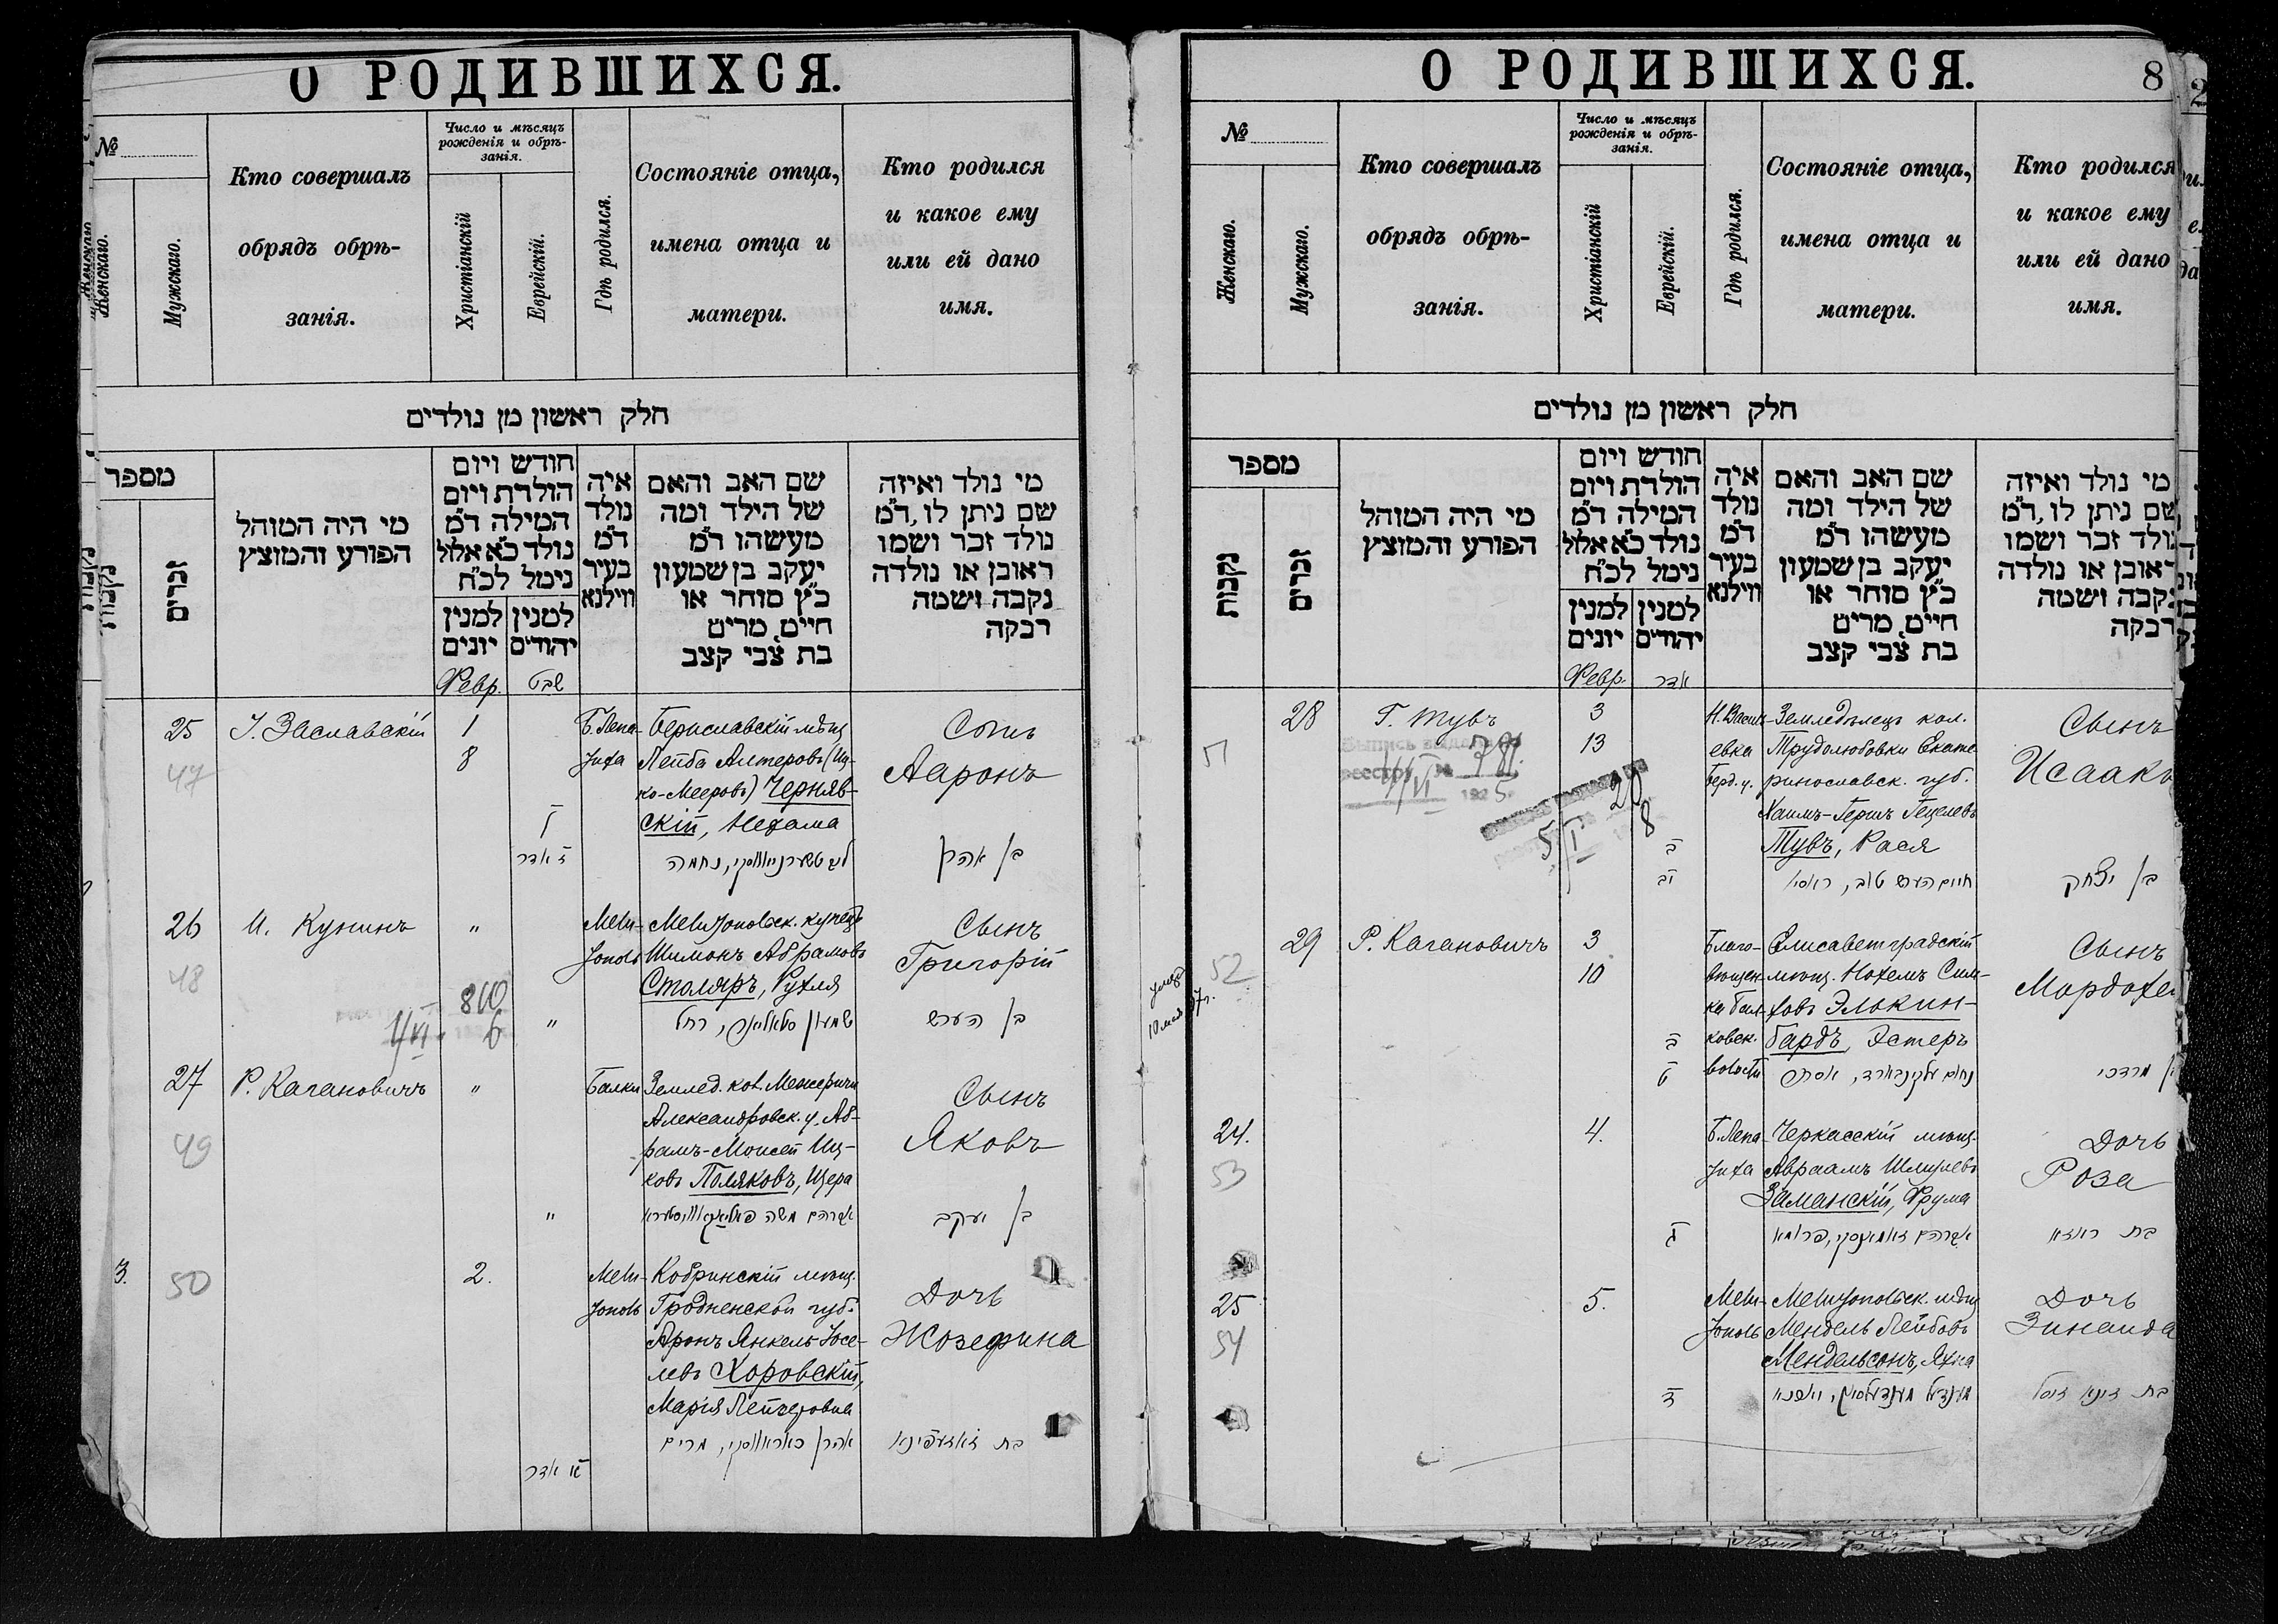 О РОДИВШИХСЯ.
№
Женскаго.
Мужскаго.
Кто совершалъ
обрядъ обрѣ-
занія.
Число и мѣсяцъ
рожденія и обрѣ-
занія.
Христіанскій
Еврейскій.
Гдѣ родился.
Состояніе отца,
имена отца и
матери.
Кто родился
и какое ему
или ей дано
имя.
חלק ראשון מן נולדים
מספר
נקבות
זכרים
מי היה המוהל
הפורע והמוצץ
חודש ויום
הולדת ויום
המילה ד״מ
נולד כ״א אלול
נימל לכ״ח
למנין
יונים
למנין
יהודים
איה
נולד
ד״מ
בעיר
ווילנא
שם האב והאם
של הילד ומה
מעשהו ד״מ
יעקב בן שמעון
כ״ץ סוחר או
חייט, מרים
בת צבי קצב
מי נולד ואיזה
שם ניתן לו, ד״מ
נולד זכר ושמו
ראובן או נולדה
נקבה ושמה
רבקה
Февр.
שבט
25
47
І. Заславскій
1
8
ז אדר
Б. Лепа-
тиха
Бериславскій мѣщ.
Лейба Алтеровъ (Иц-
ко-Мееровъ) Черняв-
скій, Нехама
Сынъ
Ааронъ
בן אהרן
26
48
И. Кунинъ
"
810
6
"
Мели-
тополь
Мелитопольск. купецъ
Шимонъ Абрамовъ
Столяръ, Рухля
Сынъ
Григорій
בן הערש
27
49
Р. Кагановичъ
"
"
Балки
Землед. кол. Межеричи
Александровск. у. Аб-
рамъ-Моисей Иц-
ковъ Поляковъ, Цера
Сынъ
Яковъ
בן יעקב
3.
50
2.
Мели-
тополь
Кобринскій мѣщ.
Гродненской губ.
Аронъ Янкель Іосе-
левъ Хоровскій,
Марія Лейзеровна
אהרן כאראווסקי, מרים
Дочь
Жозефина
בת זאזעפינא
אדר
О РОДИВШИХСЯ.
8
№
Женскаго.
Мужскаго.
Кто совершалъ
обрядъ обрѣ-
занія.
Число и мѣсяцъ
рожденія и обрѣ-
занія.
Христіанскій
Еврейскій.
Гдѣ родился.
Состояніе отца,
имена отца и
матери.
Кто родился
и какое ему
или ей дано
имя.
חלק ראשון מן נולדים
מספר
נקבות
זכרים
מי היה המוהל
הפורע והמוצץ
חודש ויום
הולדת ויום
המילה ד״מ
נולד כ״א אלול
נימל לכ״ח
למנין
יונים
למנין
יהודים
איה
נולד
ד״מ
בעיר
ווילנא
שם האב והאם
של הילד ומה
מעשהו ד״מ
יעקב בן שמעון
כ״ץ סוחר או
חייט, מרים
בת צבי קצב
מי נולד ואיזה
שם ניתן לו, ד״מ
נולד זכר ושמו
ראובן או נולדה
נקבה ושמה
רבקה
Февр.
אדר
28
51
Г. Тувъ
3
13
ב
יב
Н. Василь-
евка
Берд. у.
Земледѣлецъ кол.
Трудолюбовки Екате
ринославск. губ.
Хаимъ-Гершъ Гецелевъ
Тувъ, Рася
חיים הערש טוב, ראסיא
Сынъ
Исаакъ
בן יצחק
29
52
Р. Кагановичъ
3
10
ב
ט
Благо-
вѣщен-
ка Бал-
ковск.
волости
Елисаветградскій
мѣщ. Нохемъ Сим-
ховъ Элькин-
бардъ, Эстеръ
Сынъ
מרדכי
24.
53
4.
ג
Б. Лепа-
тиха
Черкасскій мѣщ.
Авраамъ Шмулевъ
Заманскій, Фрума
אברהם זאמאנסקי, פרומא
Дочь
Роза
בת ראזא
25
54
5.
ד
Мели-
тополь
Мелитопольск. мѣщ.
Мендель Лейбовъ
Мендельсонъ, Яхна
Дочь
Зинаида